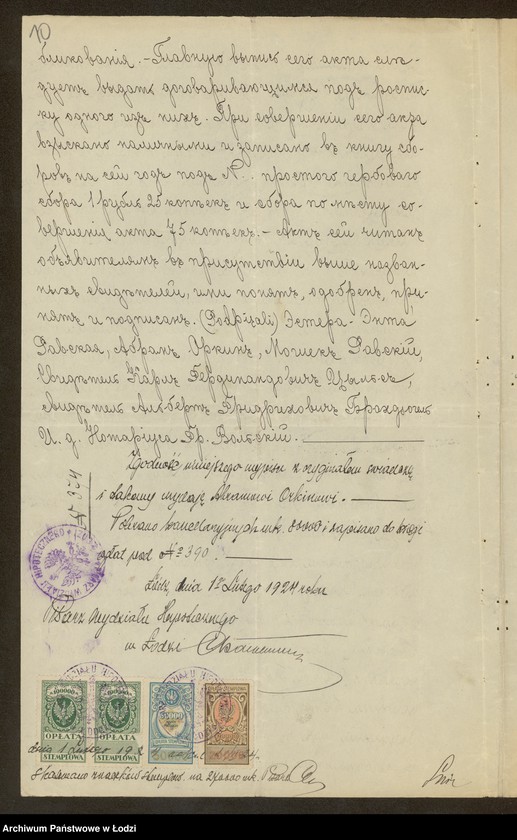 10
бликованія. - Главную выпись сего акта слѣ-
дуетъ выдать договаривающимся подъ роспис-
ку одного изъ нихъ. При совершеніи сего акта
взыскано наличными и записано въ книгу сбо-
ровъ на сей годъ подъ N.. простого гербоваго
сбора 1 рубль 25 копѣекъ и сбора по мѣсту со-
вершенія акта 75 копѣекъ. - Актъ сей читанъ
объявителямъ въ присутствіи выше назван-
ныхъ свидѣтелей, ими понятъ, одобренъ, при-
нятъ и подписанъ. (Podpisali) Эстера-Энта
Равская, Абрамъ Оркинъ, Мошекъ Равскій,
Свидѣтель Карлъ Фердинандовичъ
свидѣтель Альбертъ Фридриховичъ
И. д. Нотаріуса Гр. Вольскій.
Zgodność niniejszego wypisu z oryginałem świadczę
i takowy wydaję Abramowi Orkinowi. -
Pobrano kancelaryjnych mk. i zapisano do księgi
opłat pod № 390. -
Łódź, dnia 12 Lutego 1924 roku
Pisarz Wydziału Hypotecznego
w Łodzi
OPŁATA
STEMPLOWA
OPŁATA
STEMPLOWA
dnia Lutego 192
Skasowano znaczków stemplow. na mk. Pisarz
Archiwum Państwowe w Łodzi